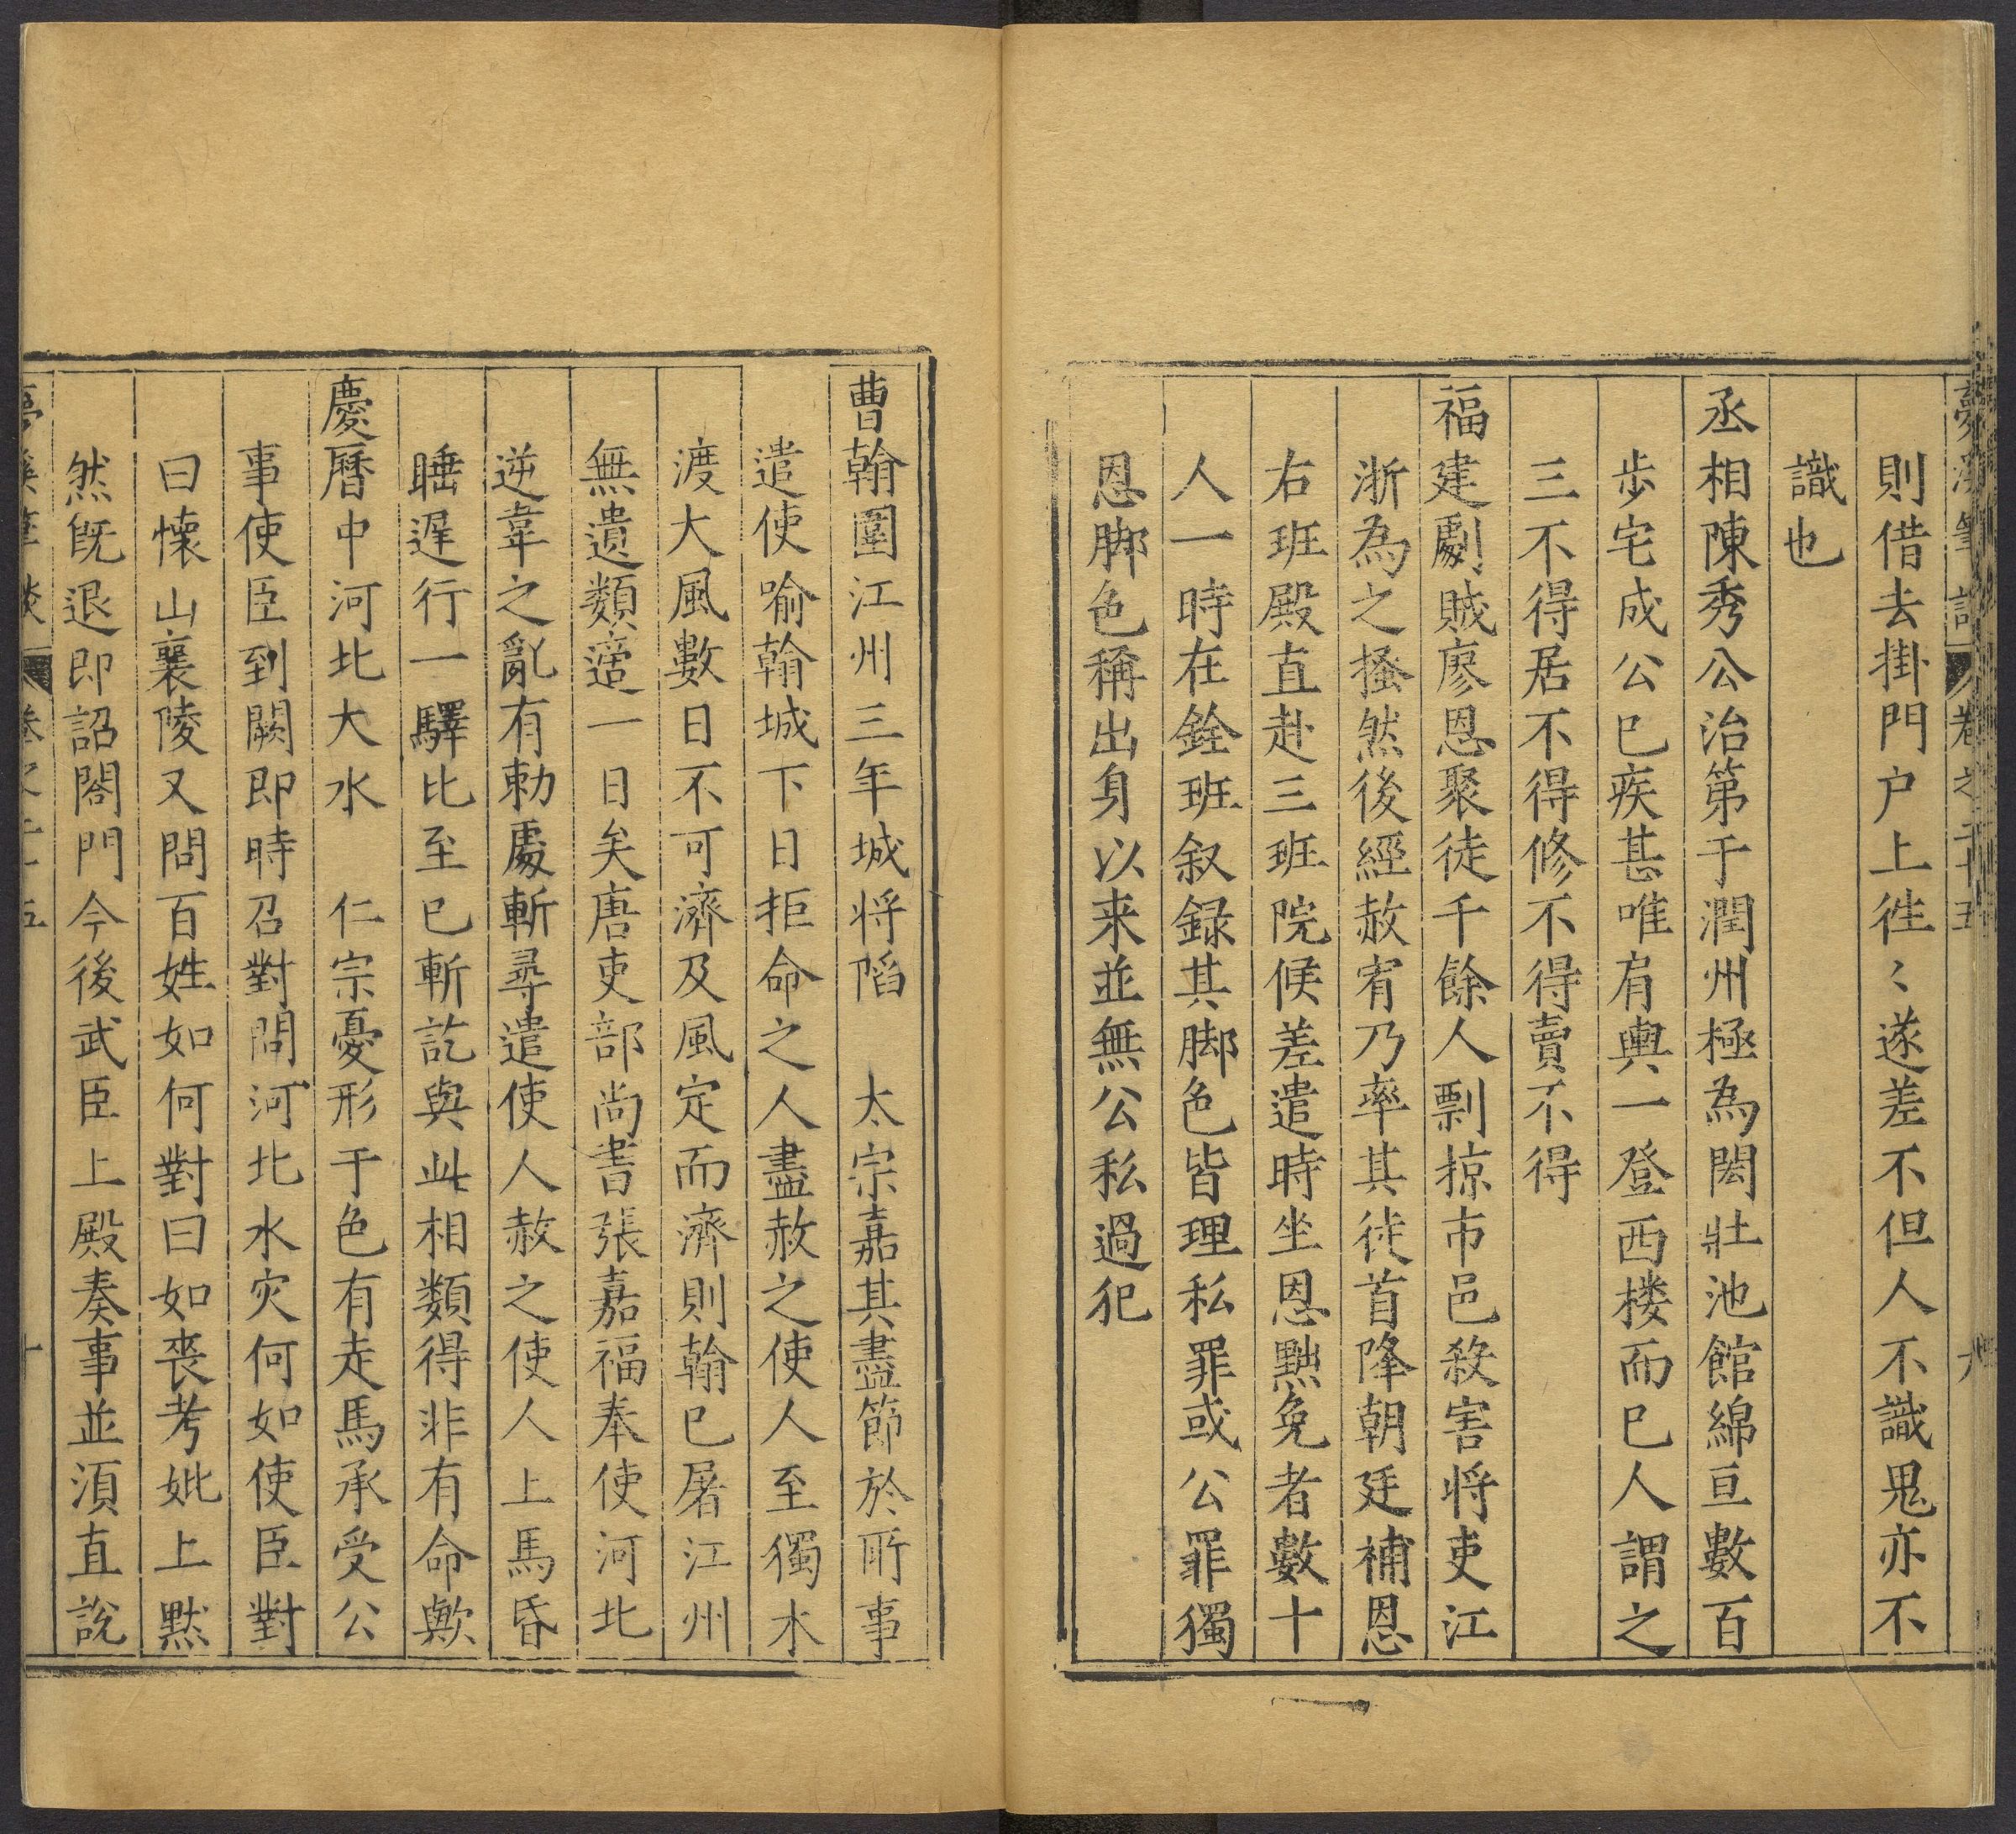 夢溪筆談 卷之二十五 九
則借去掛門户上徃〻遂差不但人不識鬼亦不
識也
丞相陳秀公治第于潤州極為閎壯池館綿亘數百
步宅成公已疾甚唯肩輿一登西楼而已人謂之
三不得居不得修不得賣不得
福建劇賊廖恩聚徒千餘人剽掠市邑殺害将吏江
浙為之搔然後經赦宥乃率其徒首降朝廷補恩
右班殿直赴三班院候差遣時坐恩黜免者數十
人一時在銓班叙録其脚色皆理私罪或公罪獨
恩脚色稱出身以来並無公私過犯
曹翰圍江州三年城将陷　太宗嘉其盡節於所事
遣使喻翰城下日拒命之人盡赦之使人至獨木
渡大風數日不可濟及風定而濟則翰已屠江州
無遺類適一日矣唐吏部尚書張嘉福奉使河北
逆韋之亂有勅處斬尋遣使人赦之使人上馬昏
睡遲行一驛比至已斬訖與此相類得非有命歟
慶曆中河北大水　仁宗憂形于色有走馬承受公
事使臣到闕即時召對問河北水灾何如使臣對
曰懐山襄陵又問百姓如何對曰如喪考妣上黙
然旣退即詔閤門今後武臣上殿奏事並湏直說
夢溪筆談 卷之二十五 十